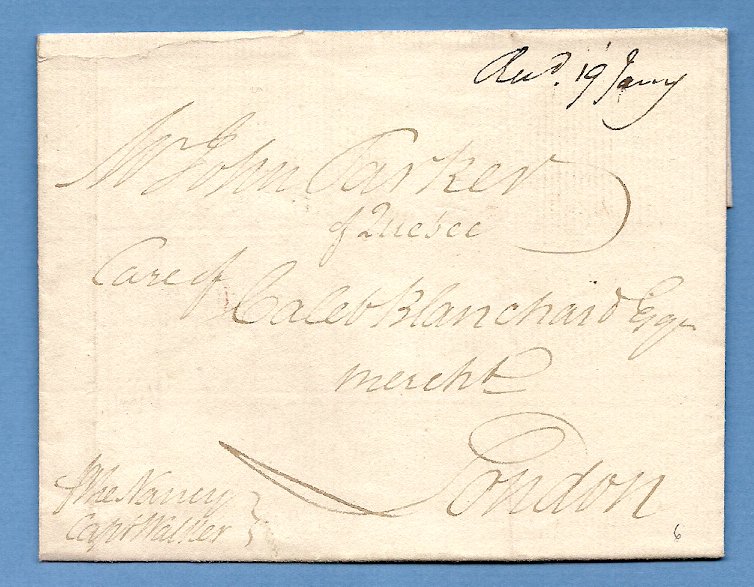 Recd. 19 Jany
Mr John Parker
of Quebec
Care of
Caleb Blanchard Esqr
mercht
London
⅌ the Nancy
Capt Walker
6